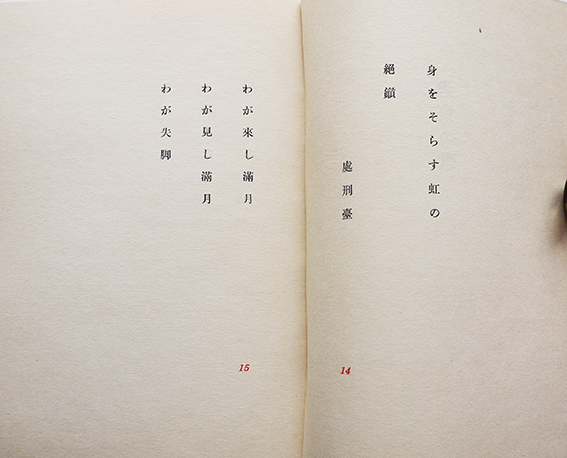 身をそらす虹の
絶巓
處刑臺
14
わが來し滿月
わが見し滿月
わが失脚
15